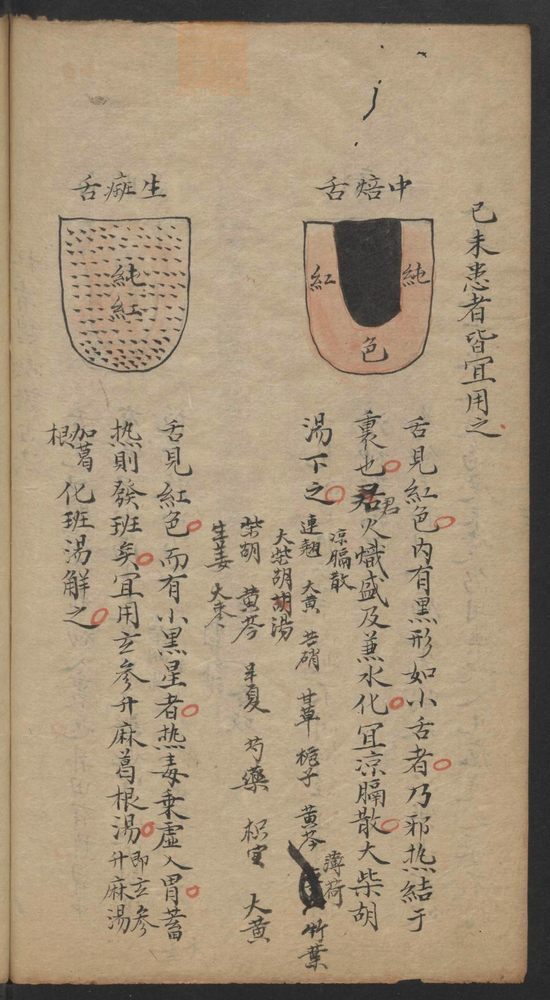 已未患者皆宜用之
中焙舌
純
紅
色
舌見紅色內有黑形如小舌者乃邪热結于
裏也君火熾盛及兼水化宜凉膈散大柴胡
湯下之
凉膈散
連翹 大黄 芒硝 甘草 梔子 黄芩 薄荷 竹葉
大柴胡湯
柴胡 黄芩 半夏 芍藥 枳实 大黄
生姜 大枣
生瘢舌
純
紅
舌見紅色而有小黑星者热毒乗虚入胃蓄
热則發班矣宜用玄參升麻葛根湯即玄參升麻湯
加葛根化班湯解之